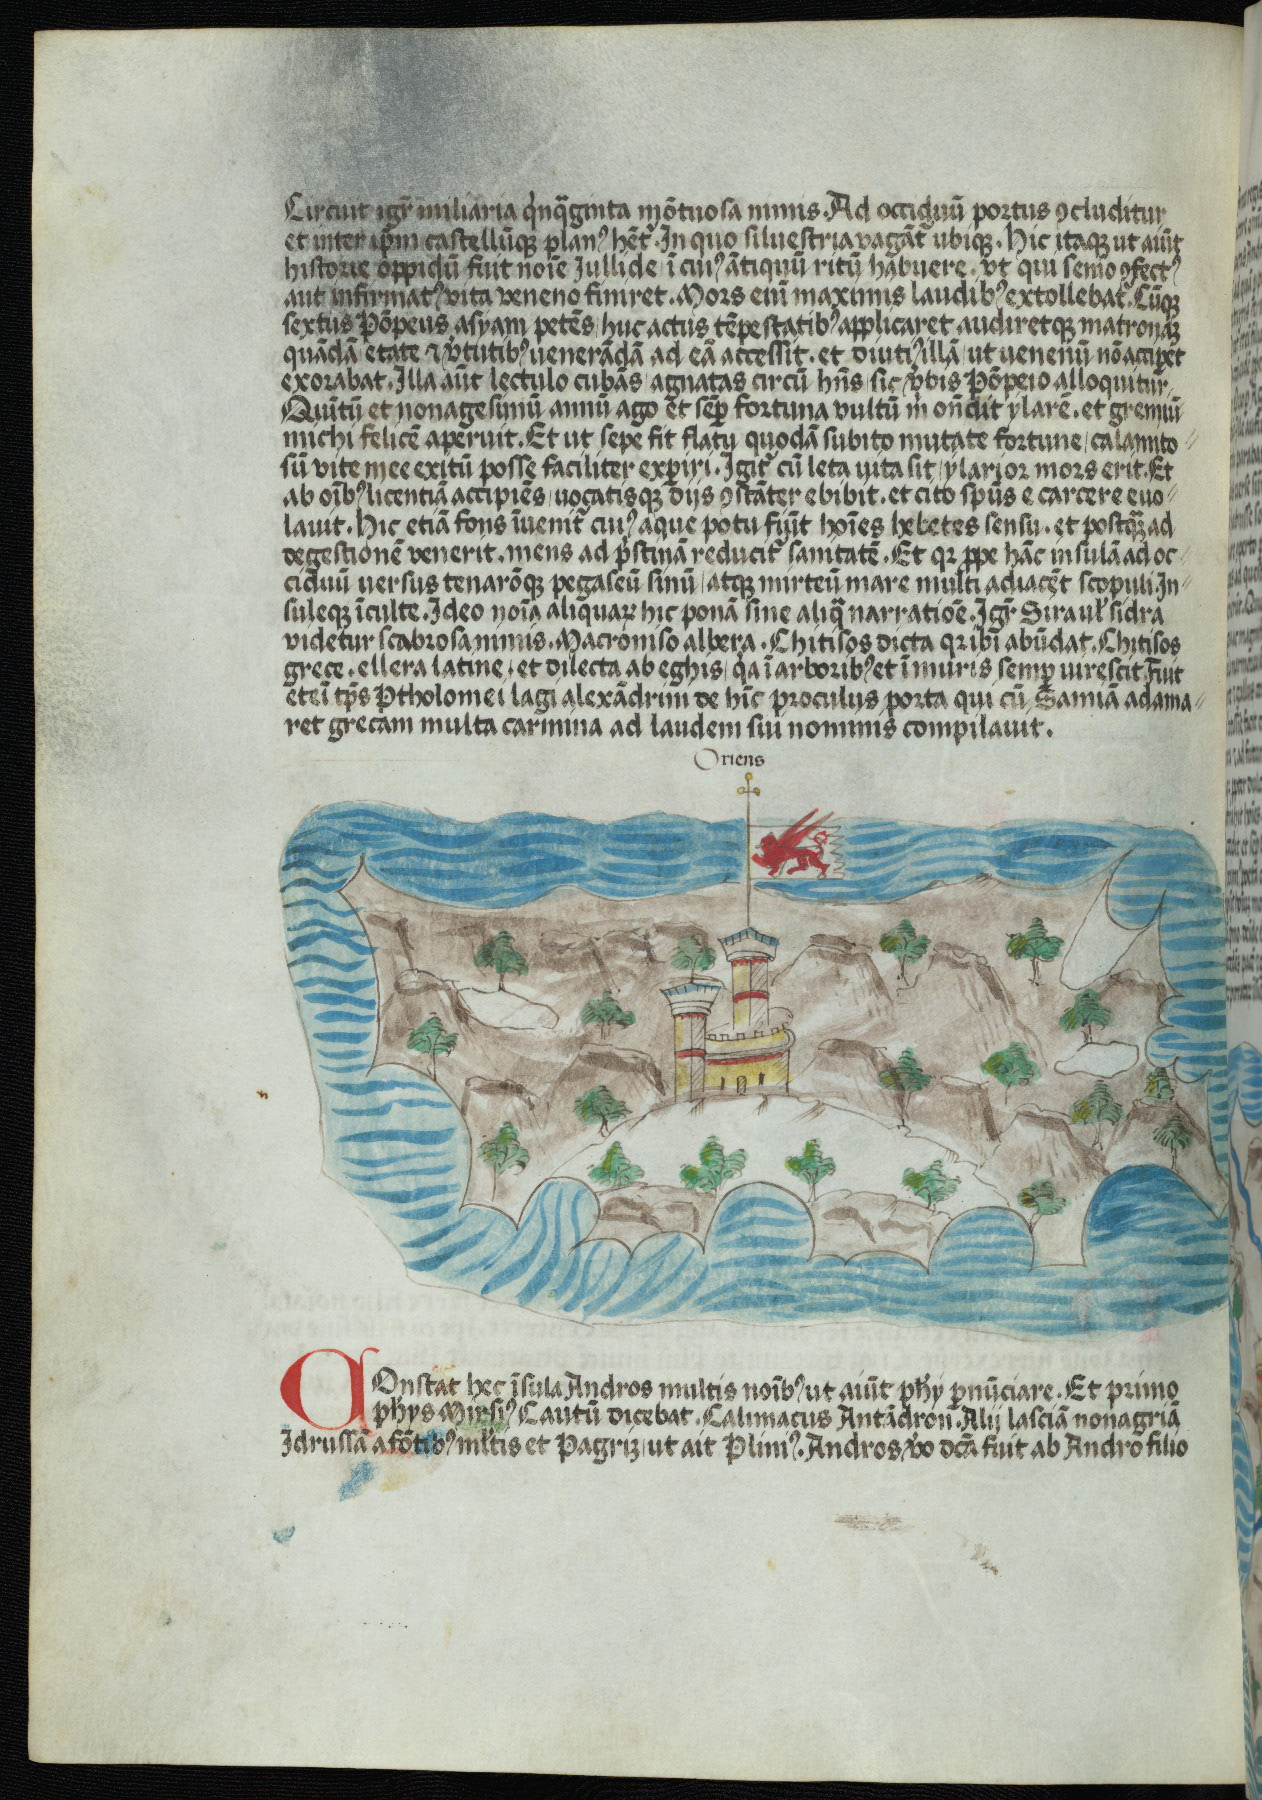 Circuit igr̃ miliaria q̇nq̃ginta mõtuosa nimis. Ad occiduũ portus ꝯcluditur
et inter ip̃m castellũqꝫ planꝰ hẽt. In quo siluestria vagãt᷑ ubiqꝫ. Hic itaqꝫ ut aiũt
historie oppidũ fuit noĩe Iullide ĩ cuiꝰ ãtiquũ ritũ hãbuere. vt qui senio ꝯfectꝰ
aut infirmatꝰ vita veneno finiret. Mors eni᷑ maximis laudibꝰ extollebat᷑. Cũqꝫ
sextus Põpeus asyam petẽs huc actus tẽpestatibꝰ applicaret audiretqꝫ matronaꝝ
quãdã etate ⁊ v̓tutibꝰ venerãdã ad eã accessit. et diutiꝰ illã ut uenenũ nõ acciꝑet
exorabat. Illa aũt lectulo cubãs agnatas circũ hñs sic v̓bis Põpeio alloquitur.
Quĩtũ et nonagesimũ annũ ago et sẽꝑ fortuna vultũ m̓ oñdit ylarẽ. et gremiũ
michi felicẽ aperuit. Et ut sepe fit flatu quodã subito mutate fortune calamito⸗
sũ vite mee exitũ posse faciliter experiri. Igit᷑ cũ leta uita sit ylarior mors erit. Et
ab oĩbꝰ licentiã accipiẽs uocatisqꝫ dijs ꝯstãter ebibit. et cito sp̃us e carcere euo⸗
lauit. Hic etiã fons ĩvenit᷑ cuiꝰ aque potu fiũt hoĩes hebetes sensu. et postq̃ꝫ ad
degestionẽ venerit. mens ad pr̓stinã reducit᷑ sanitatẽ. Et qꝛ ꝓpe hãc insulã ad oc⸗
ciduũ versus tenarõqꝫ pegaseũ sinũ atqꝫ mirteũ mare multi adiacẽt scopuli In⸗
suleqꝫ ĩculte. Ideo noĩa aliquaꝝ hic ponã sine aliq̃ narratiõe. Igr̃ Siraul̓ sidra
videtur scabrosa nimis. Macroniso albera. Chitisos dicta qꝛ ibi abũdat. Chitisos
grece. ellera latine. et dilecta ab eghis q̃a ĩ arboribꝰ et ĩ muris semꝑ uirescit. Fuit
eteĩ tp̃s Ptholomei lagi alexãdrini de hĩc proculus porta qui cũ Samiã adama⸗
ret grecam multa carmina ad laudem sui nominis compilauit.
Oriens
COnstat hec ĩsula Andros multis noĩbꝰ ut aiũt phỹ ꝑnũciare. Et primo
phys Mirsiꝰ Cautũ dicebat. Calimacus Antãdron̄. Alij lasciã nonagriã
Idrussã a fõtibꝰ ml̓tis et Pagriꝫ ut ait Pliniꝰ. Andros v̓o dc̃a fuit ab Andro filio